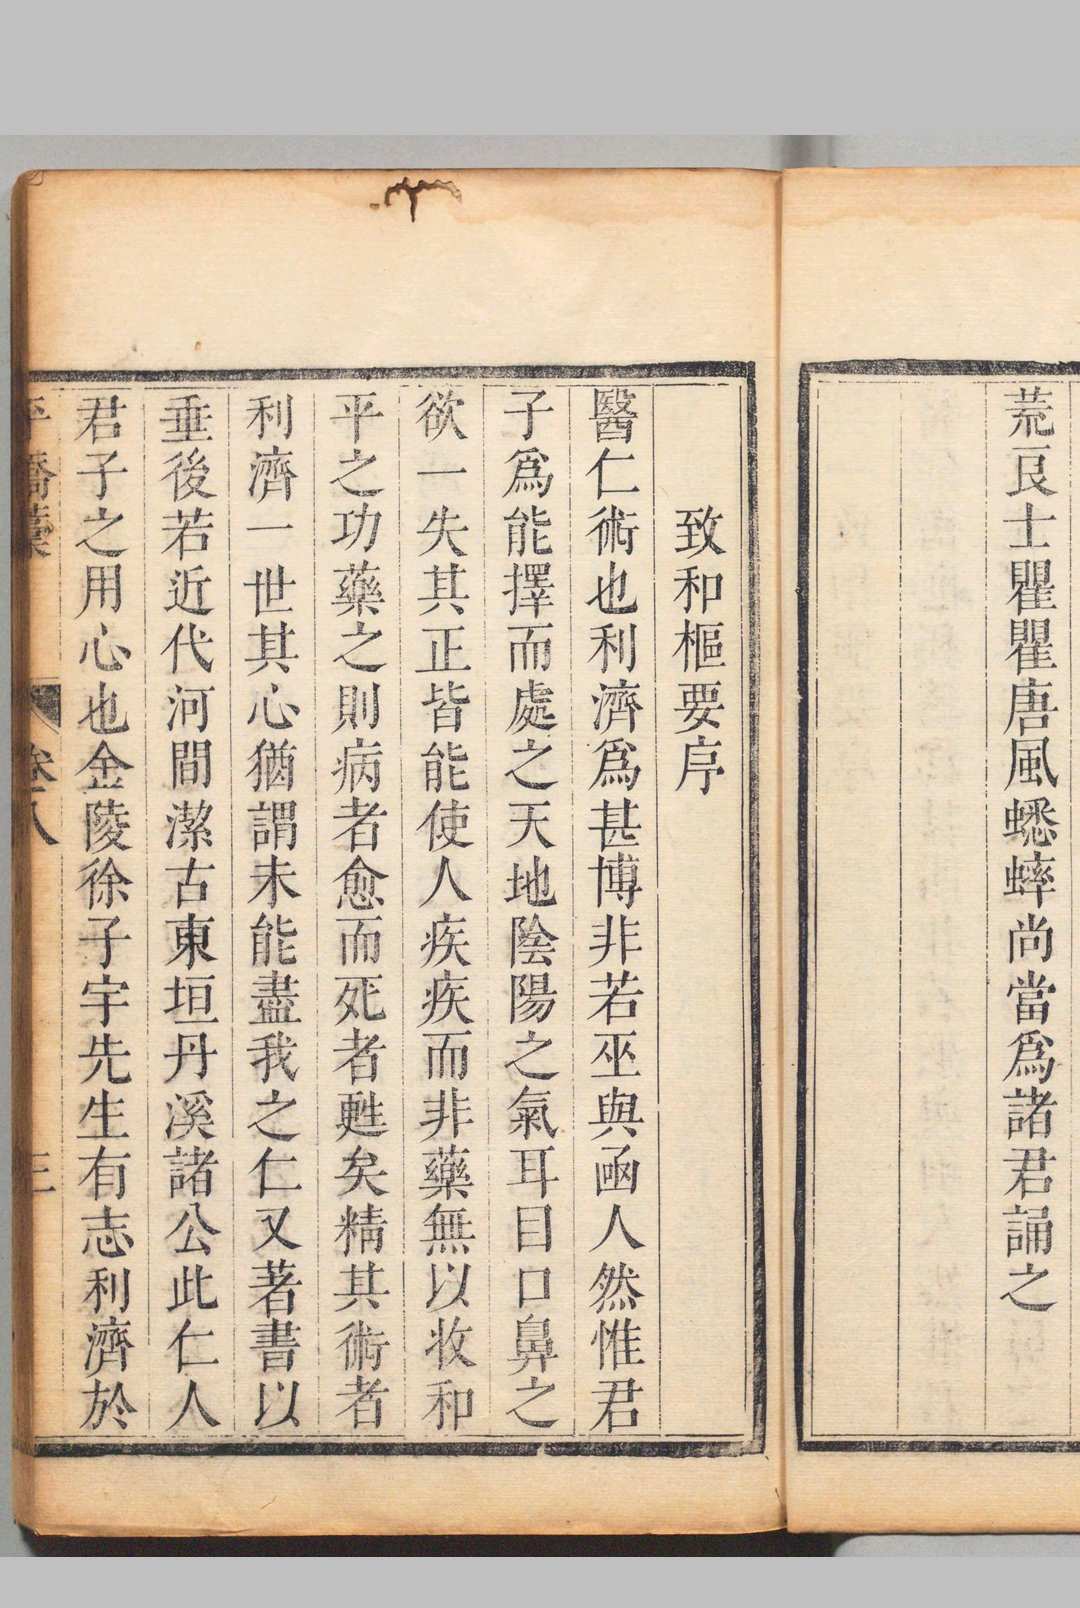 荒良士瞿瞿唐風蟋蟀尚當爲諸君誦之
致和樞要序
醫仁術也利濟爲甚博非若巫與函人然惟君
子爲能擇而處之天地陰陽之氣耳目口鼻之
欲一失其正皆能使人疾疾而非藥無以收和
平之功藥之則病者愈而死者甦矣精其術者
利濟一世其心猶謂未能盡我之仁又著書以
垂後若近代河間潔古東垣丹溪諸公此仁人
君子之用心也金陵徐子宇先生有志利濟於
卷八 三